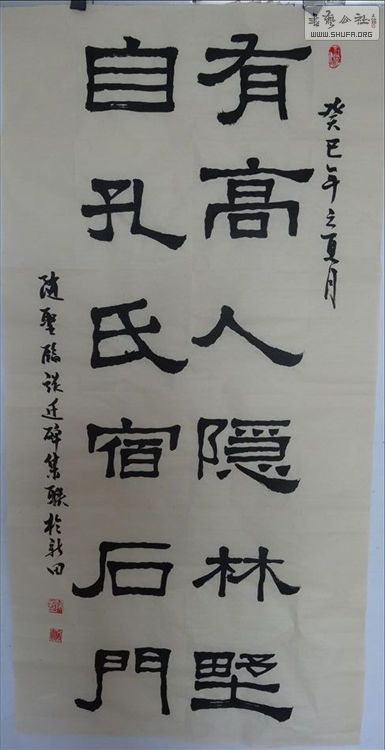 書藝公社
WWW.SHUFA.ORG
癸巳年之夏月
有高人隐林墅
自孔氏宿石門
随聖臨張遷碑集联於新田